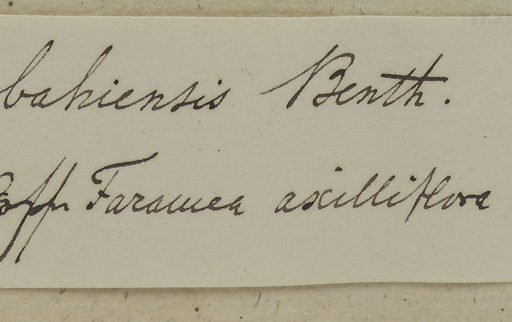 bahiensis Benth.
Faramea axilliflora